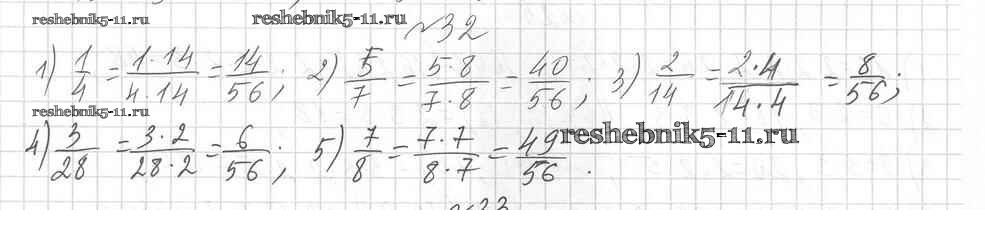 reshebnik5-11.ru reshebnik5-11.ru
№32
1) 1/4 = 1·14/4·14 = 14/56; 2) 5/7 = 5·8/7·8 = 40/56; 3) 2/14 = 2·4/14·4 = 8/56;
reshebnik5-11.ru
4) 3/28 = 3·2/28·2 = 6/56; 5) 7/8 = 7·7/8·7 = 49/56.
reshebnik5-11.ru
№33